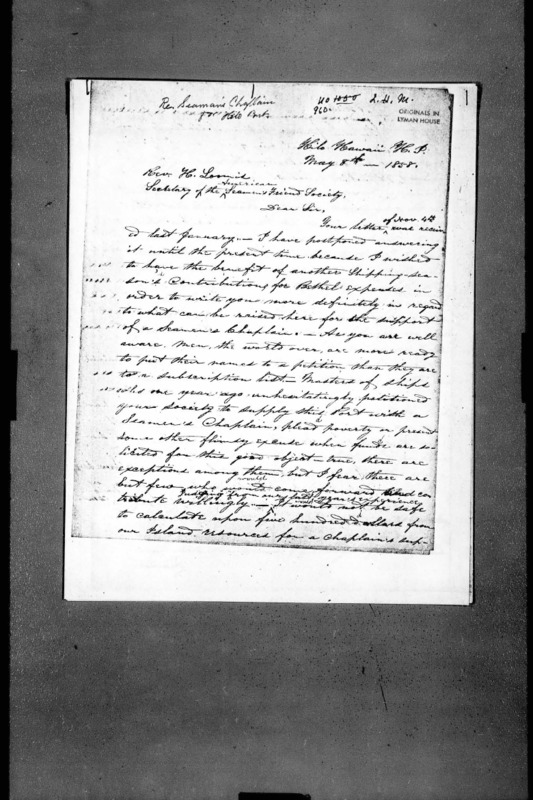 Re, Seaman's Chaplain
for Hilo Port
L. H. M.
ORIGINALS IN
LYMAN HOUSE
Hilo Hawaii H. I.
May 8th — 1858.
Rev. H. Loomis
American
Secretary of the Seamen's Friend Society.
Dear Sir,
of Nov. 4th
Your letter, was receiv
ed last January — I have postponed answering
it until the present time because I wished
to have the benefit of another Shipping-sea-
son's Contributions for Bethel expenses in
order to write you more definitely in regard
to what can be raised here for the support
of a Seamen's Chaplain. — As you are well
aware, men, the world over, are more ready
to put their names to a petition, than they are
to a subscription list — Masters of ships
who one year ago unhesitatingly petitioned
your society to supply this Port with a
Seamen's Chaplain, plead poverty or present
some other flimsy excuse when funds are so-
licited for this good object — true, there are
exceptions among them, but I fear there are
would
but few, who would come forward and con
Judging from our past years experience,
tribute willingly — it would not be safe
to calculate upon five hundred dollars from
our Island resources for a chaplain's sup-